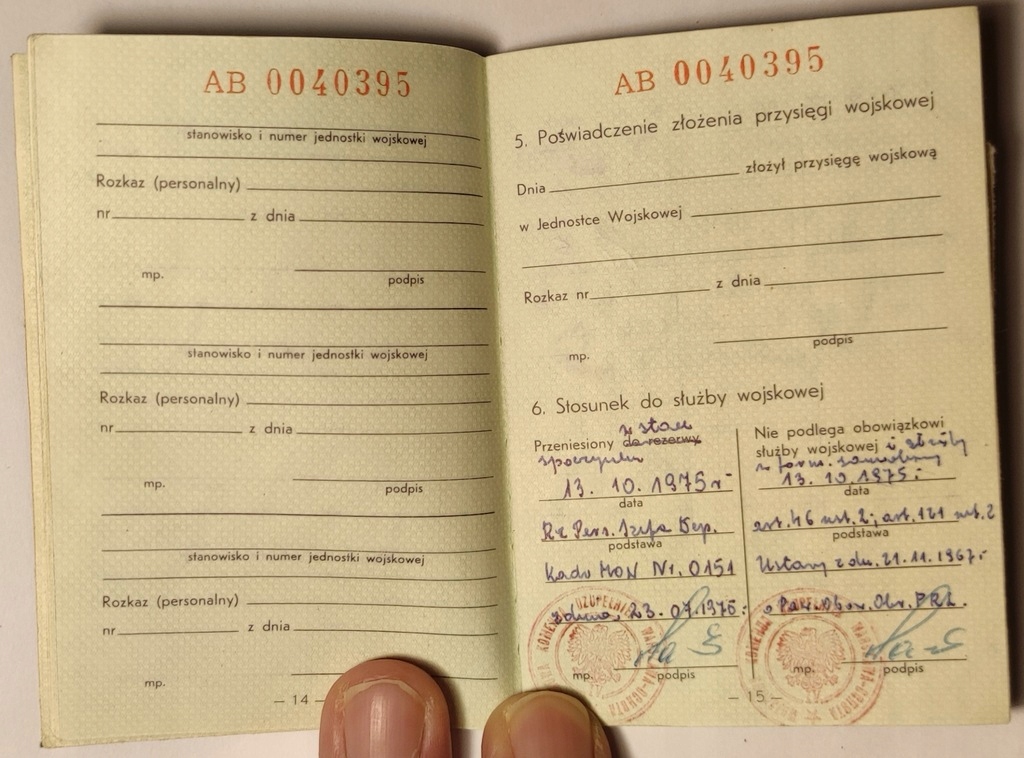 AB 0040395
stanowisko i numer jednostki wojskowej
Rozkaz (personalny)
nr z dnia
mp. podpis
stanowisko i numer jednostki wojskowej
Rozkaz (personalny)
nr z dnia
mp. podpis
stanowisko i numer jednostki wojskowej
Rozkaz (personalny)
nr z dnia
mp.
– 14 –
AB 0040395
5. Poświadczenie złożenia przysięgi wojskowej
Dnia złożył przysięgę wojskową
w Jednostce Wojskowej
Rozkaz nr z dnia
mp. podpis
6. Stosunek do służby wojskowej
w stan
Przeniesiony do rezerwy
spoczynku
13. 10. 1975 r.
data
Rz. Pers. Szefa Dep.
podstawa
Kadr MON Nr. 0151
z dnia 23.07.1975.
mp. podpis
Nie podlega obowiązkowi
służby wojskowej i służby
w form. samoobrony
13. 10. 1975.
data
art. 46 ust. 2; art. 121 ust. 2
podstawa
Ustawy z dn. 21.11.1967.
o Pow. Obow. Obr. PRL.
mp. podpis
– 15 –